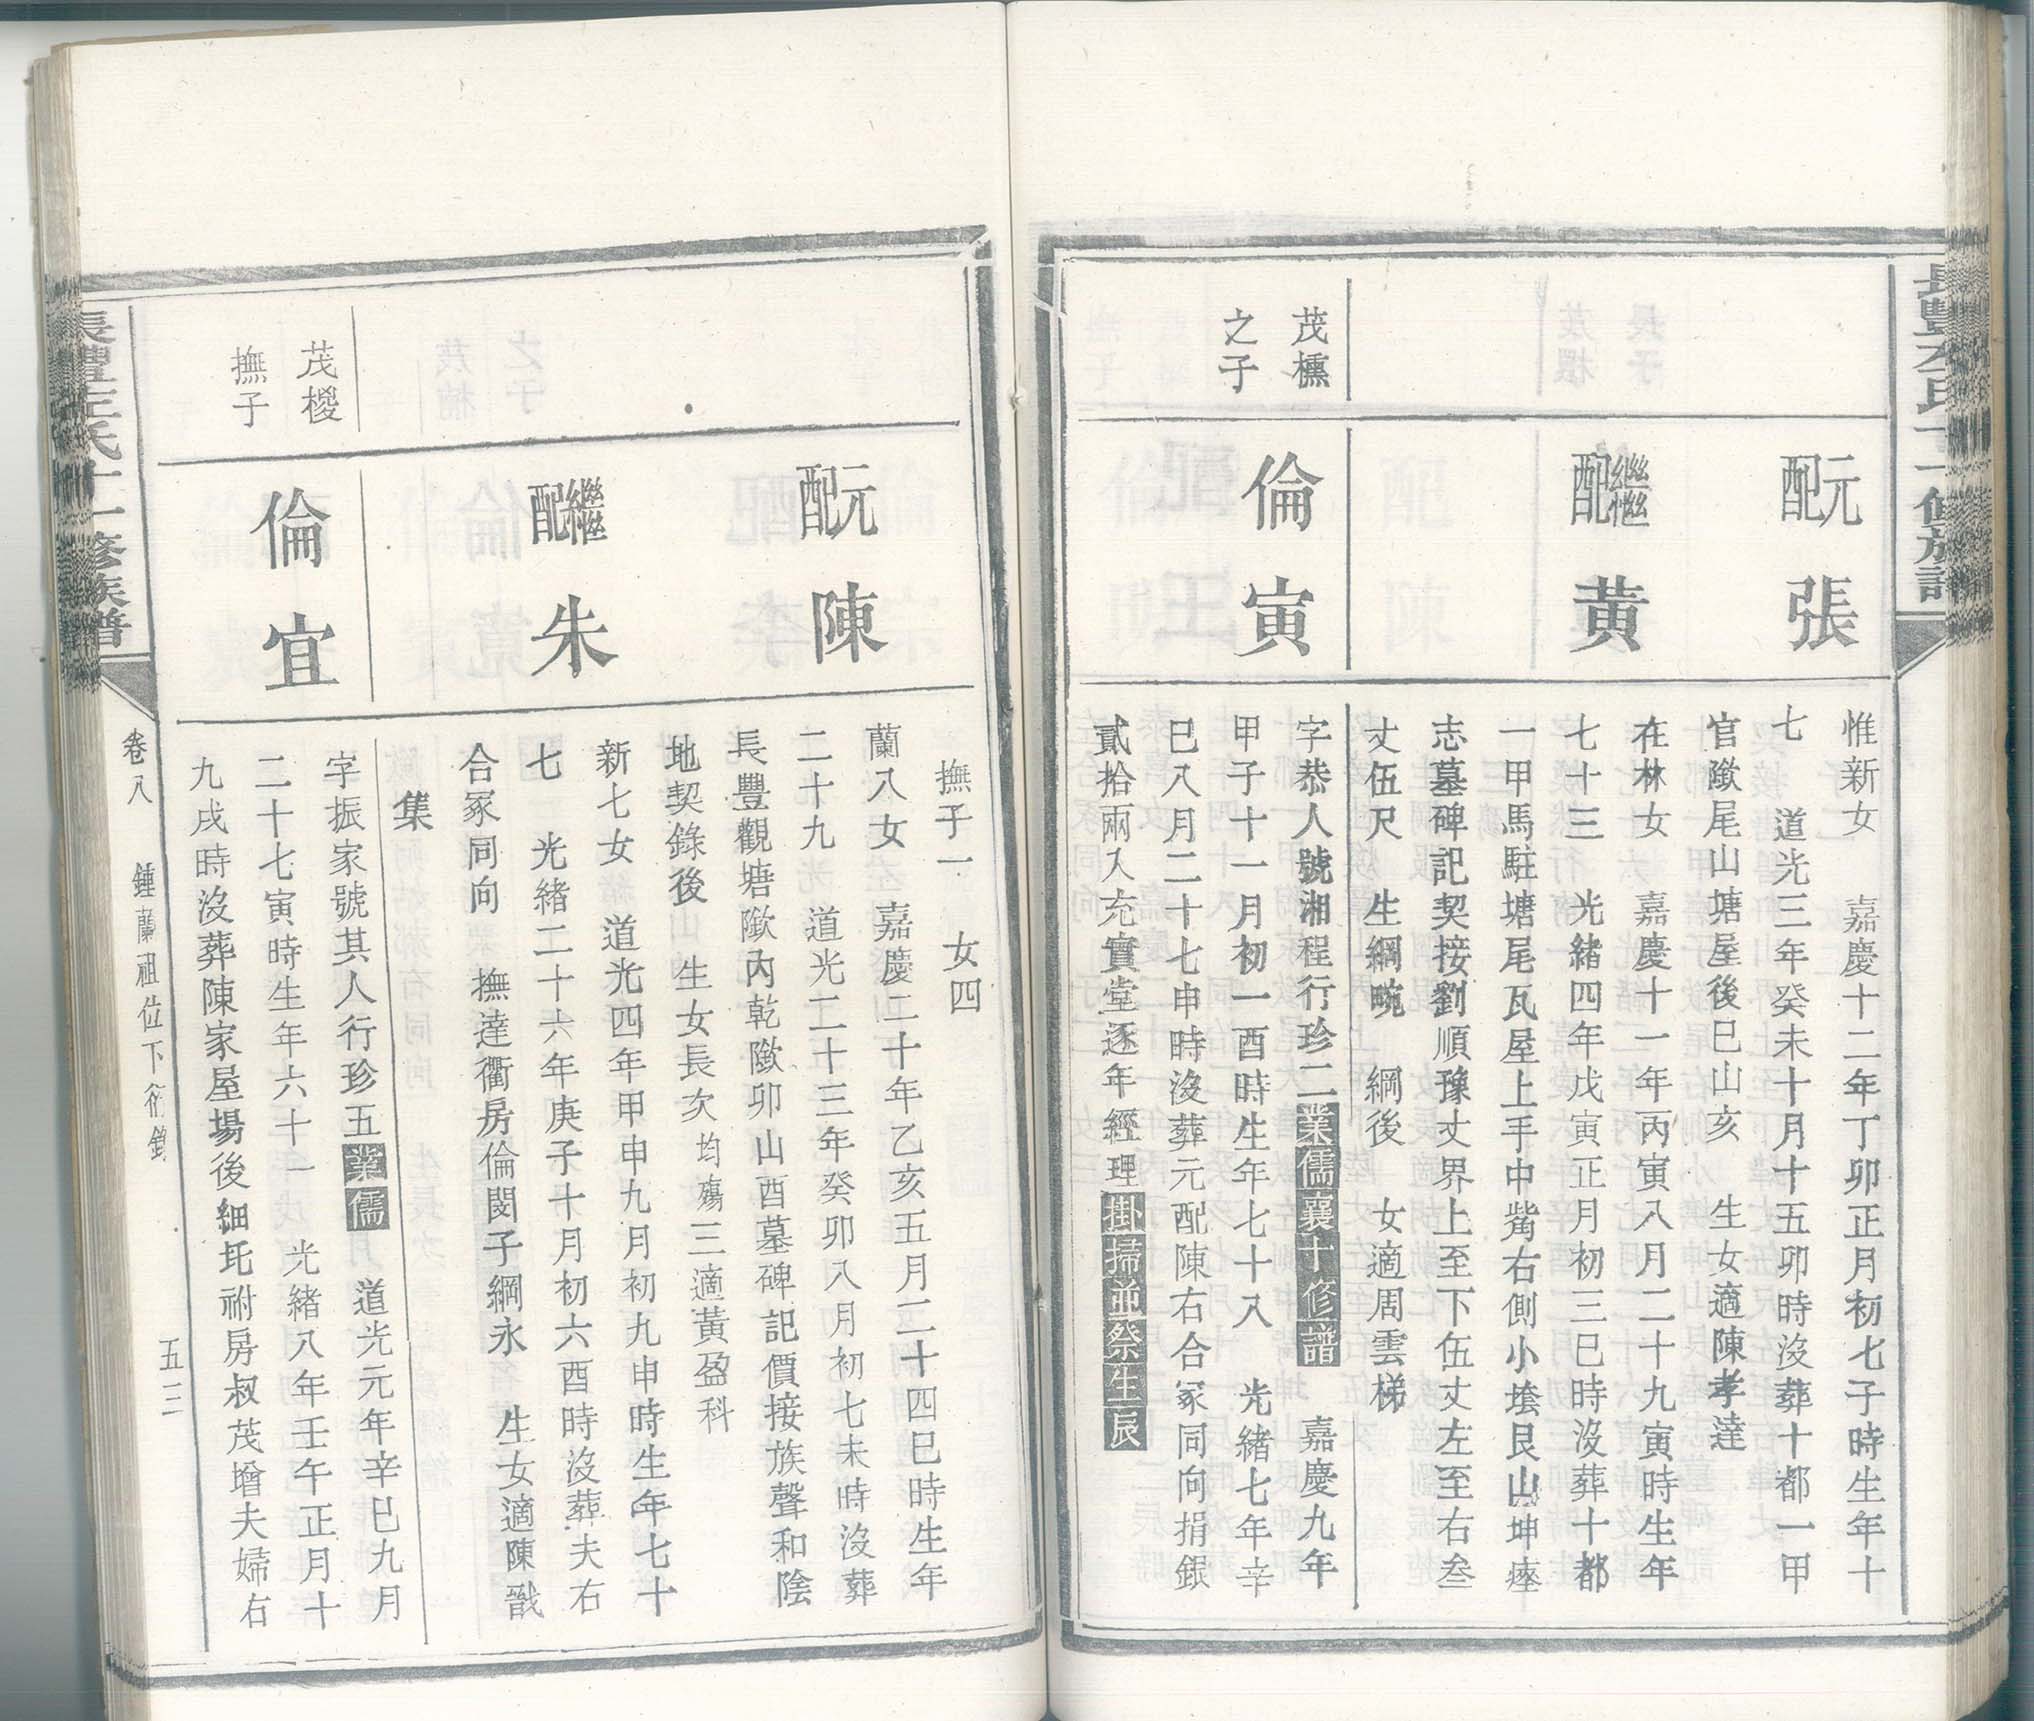 長豐左氏十一修族譜
元配
張
惟新女　嘉慶十二年丁卯正月初七子時生年十
七　道光三年癸未十月十五卯時沒葬十都一甲
官歘尾山塘屋後巳山亥　生女適陳孝達
繼配
黃
在林女　嘉慶十一年丙寅八月二十九寅時生年
七十三　光緒四年戊寅正月初三巳時沒葬十都
一甲馬駐塘尾瓦屋上手中嘴右側小墖艮山坤塋
志墓碑記契接劉順豫丈界上至下伍丈左至右叁
丈伍尺　生綱畹　綱後　女適周雲梯
茂櫄
之子
倫寅
字恭人號湘程行珍二業儒襄十修譜　嘉慶九年
甲子十一月初一酉時生年七十八　光緒七年辛
巳八月二十七申時沒葬元配陳右合冢同向捐銀
貳拾兩入充實堂逐年經理掛掃並祭生辰
元配
陳
撫子一　女四
蘭八女　嘉慶二十年乙亥五月二十四巳時生年
二十九　道光二十三年癸卯八月初七未時沒葬
長豐觀塘歘內乾歘卯山酉墓碑記價接族聲和陰
地契錄後　生女長次均殤三適黃盈科
繼配
朱
新七女　道光四年甲申九月初九申時生年七十
七　光緒二十六年庚子十月初六酉時沒葬夫右
合冢同向　撫達衢房倫閔子綱永　生女適陳戩
集
茂椶
撫子
倫宜
字振家號其人行珍五業儒　道光元年辛巳九月
二十七寅時生年六十一　光緒八年壬午正月十
九戌時沒葬陳家屋場後細圫祔房叔茂增夫婦右
長豐左氏十一修族譜
卷八　鍾蘭祖位下衍錄　五三